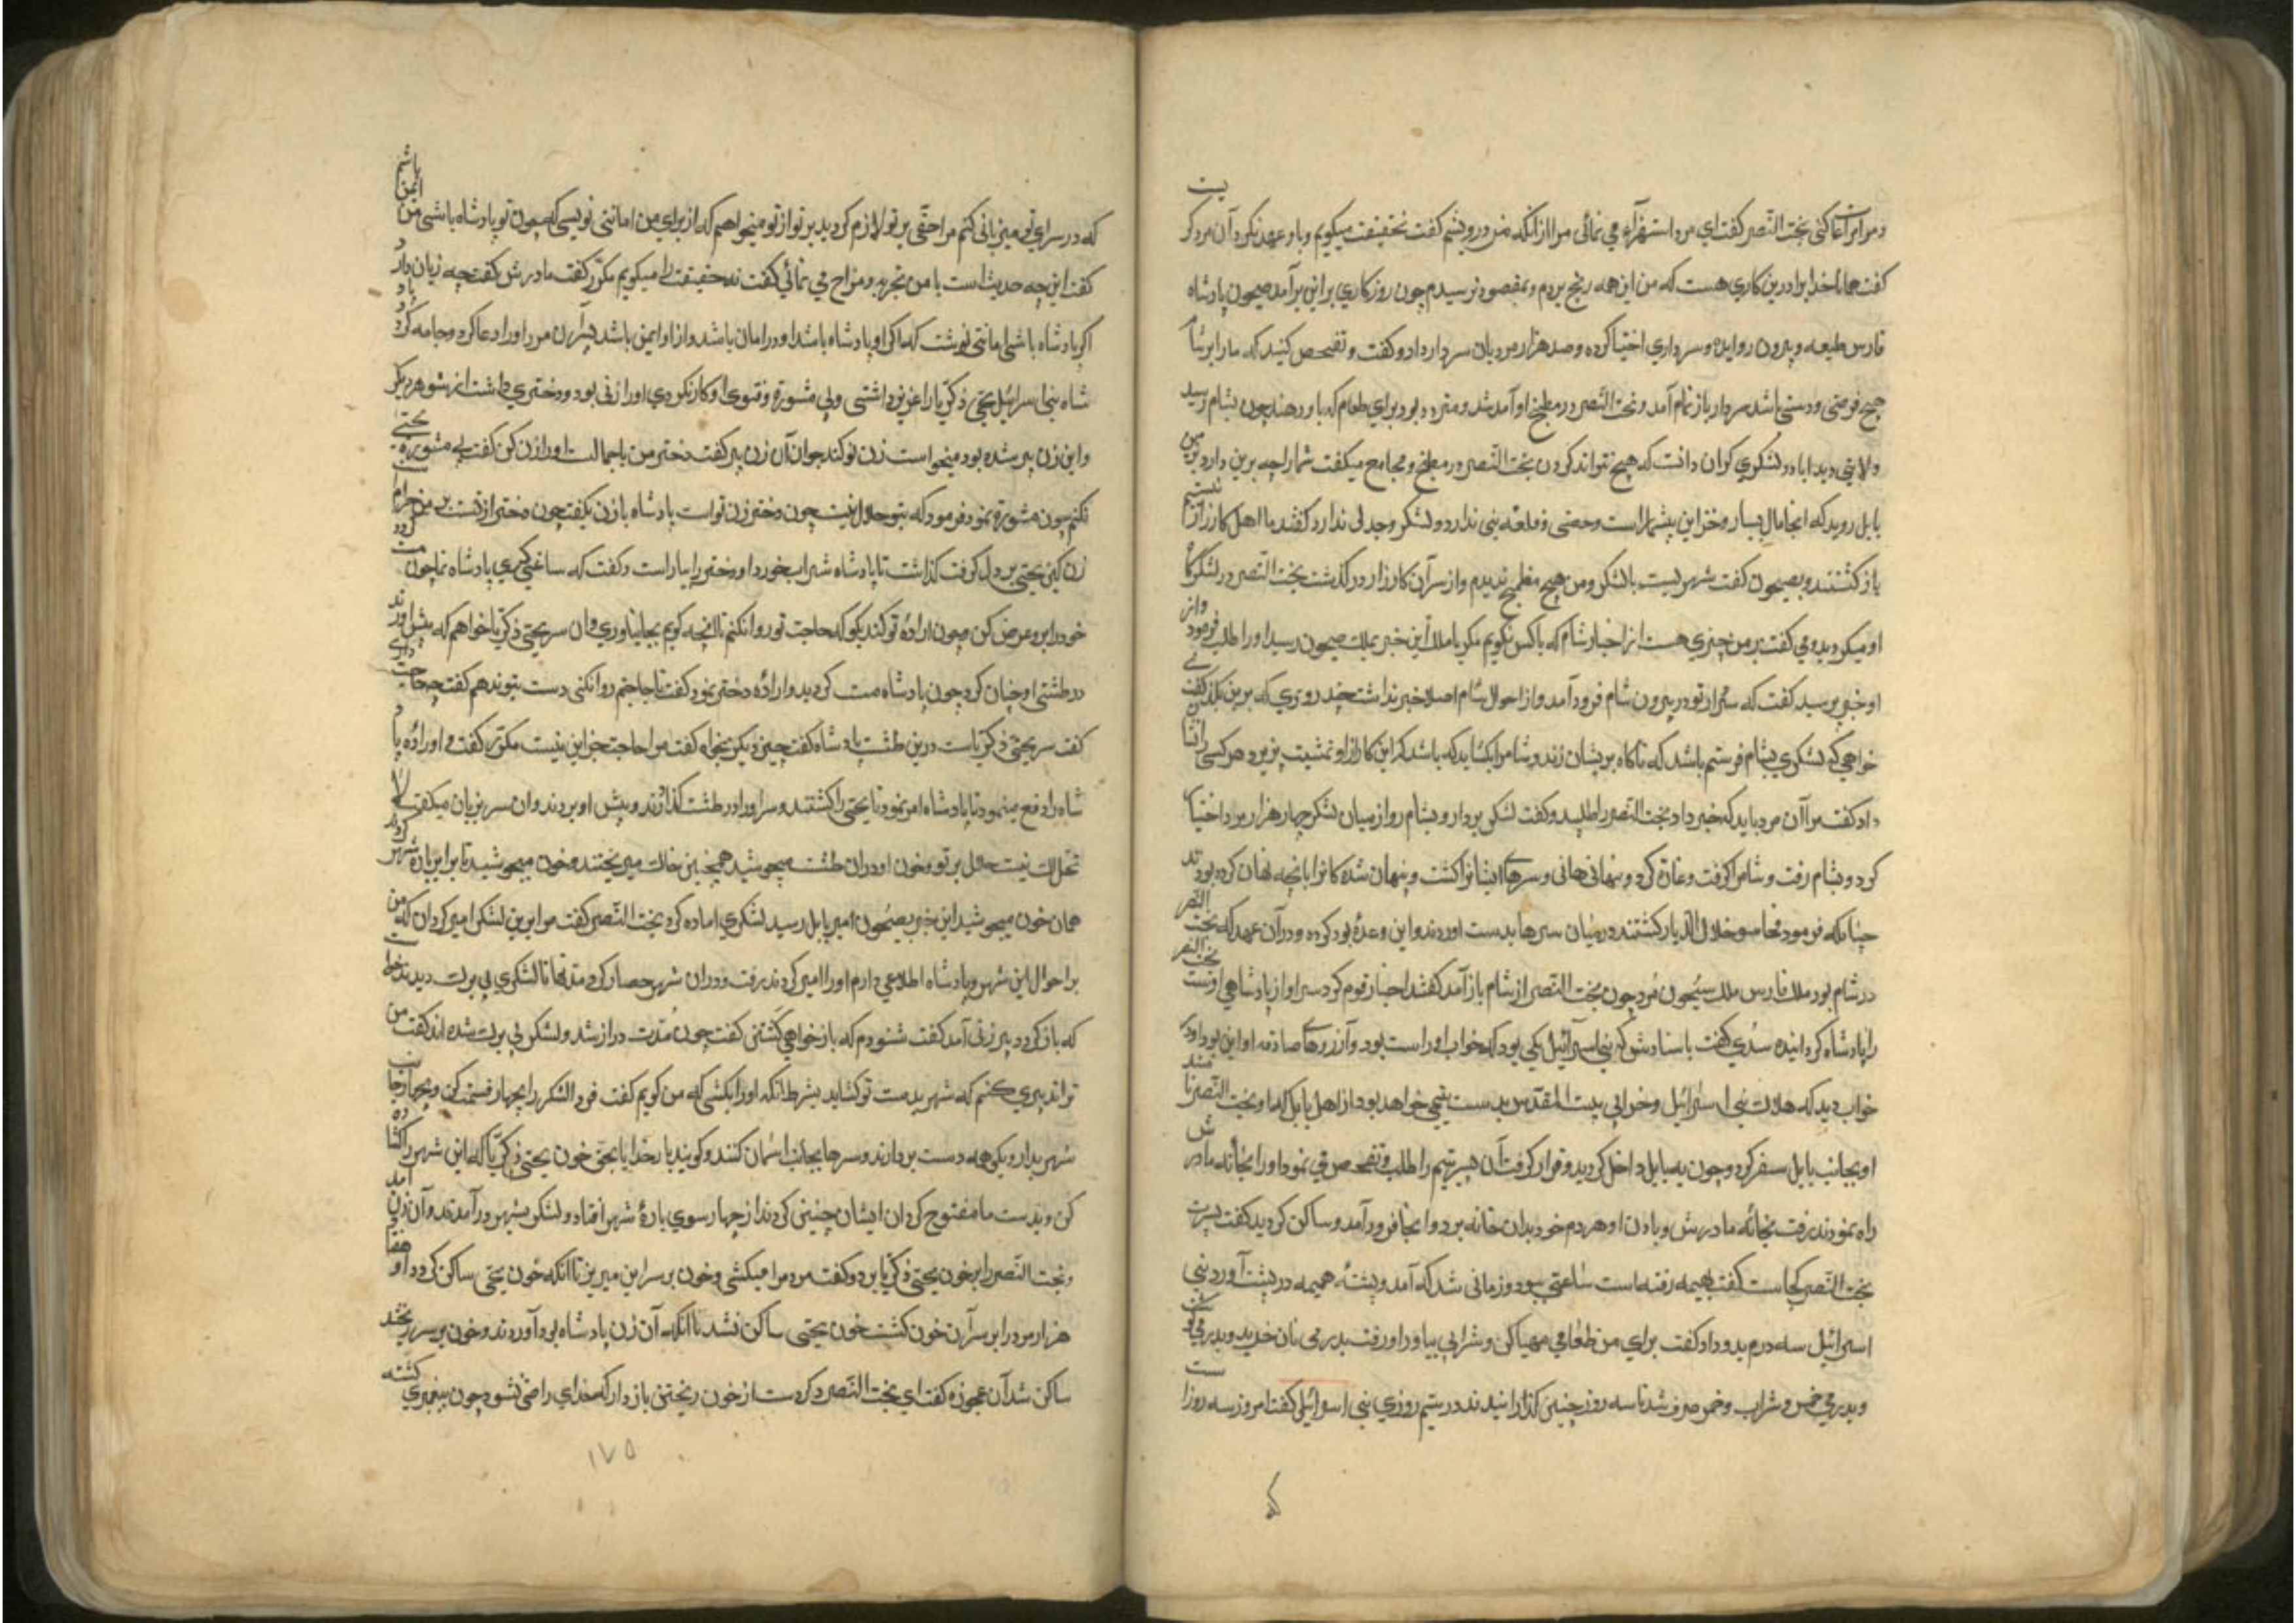 و مرا بران اغا کنی بخت النّصر گفت ای مرد استهزاء می نمائی مرا ازانکه من درویشم گفت بحقیقت میکویم و باو عهد بکرد آن مرد کر
یست
گفت هانا خدا برا درین کاری هست که من این همه رنج بردم و بمقصود نرسیدم چون روزکاری براین برآمد صیحون پادشاه
فارس طلیعه بیرون روانید و سرداری اختیا کرده و صد هزار مرد بان سردار داد و گفت و تفحص کنید که مارا بر شا
م هیچ فرصتی و دستی باشد سردار باز تمام آمد و بخت النّصر در مطبخ او آمد شد و متردد بود برای طعام که باو دهند چون بشام رسید
ولایتی دید اباد و لشکری کران دانست که هیچ نتواند کردن بخت النّصر در مطبخ و مجامع میکفت شما را چه برین دارد که
بابل روید که انجا مال بسیار و خزاین بیشمار است و حصنی و قلعه بنی ندارد و لشکر و جدلی ندارد گفتند ما اهل کارزار
نیستیم
باز گشتند و بصیحون گفت شهریست با لشکر و من هیچ مطمح ندیدم و از سرآن کارزار در گذشت بخت النّصر در لشکرگا
او میکردید و می گفت بر من چیزی هست از اخبار شام که با کس نگویم مکر با ملک این خبر بملک صیحون رسید او را طلب فرمود
و از
او خبر پرسید گفت که سردار تو در بیرون شام فرود آمد و از احوال شام اصلا خبر نداشت چند روزی که برین بگذشت گفت
خواهی که لشکری بشام فرستم باشد که ناکاه بریشان زند و شام را بکشاید که باشد که این کار از او تمشیت پزیرد هر کسی را نشا
داد گفت مرا آن مرد باید که خبر داد بخت النّصر را طلبید و گفت لشکر بردار و بشام رو از میان لشکر چهار هزار مرد اختیا
کرد و بشام رفت و شام را گرفت و غارة کرد و پنهانی هانی و سرهای ایشانرا کشت و پنهان شده کانرا بانچه نهان کرده بودند
چنانکه فرمود فجاسوا خلال الدّیار کشتند در میان سرها بدست اوردند و این وعدهٔ بود کرده و درآن عهد که بخت
النّصر
در شام بود ملک فارس ملک سیحون مرد چون بخت النّصر از شام باز آمد گفتند احبار قوم کرد سر او از پادشاهی اوست
بخت النصر
را پادشاه کردانیده سدّی گفت باسنادش که بنی اسرائیل یکی بود که خواب او راست بود و آرزوهای صادقه او این بود او در
خواب دید که هلاک بنی اسرائیل و خرابی بیت المقدّس بدست یتیمی خواهد بود از اهل بابل که او بخت النّصر نا
مند
او بجانب بابل سفر کرد و چون به بابل داخل کردید و قرار گرفت آن پسر یتیم را طلب و تفحص می نمود او را بخانه مادر
ش
راه نمودند برفت بخانه مادرش و بادن او هر دم خود بدان خانه برد و انجا فرود آمد و ساکن کردید گفت پسرت
بخت النّصر کجاست گفت بهیمه رفته است ساعتی ببود و زمانی شد که آمد و پشتهٔ هیمه در پشت آورد بنی
اسرائیل سه درم بدو داد گفت برای من طعامی مهیا کن و شرابی بیاور او رفت بدرمی نان خرید و بدرمی گو
شت
و بدرمی خمر و شراب و خمر صرف شد تا سه روز چنین گذارانیدند در سیّم روزی بنی اسرائیلی گفت امروز سه روز ا
ست
که
که در سرای تو میزبانی کنم مرا حقّی بر تو لازم کردید بر تو از تو میخواهم که از برای من امانتی نویسی که چون تو پادشاه باشی من
ایمن باشم
گفت این چه حدیث است با من تجربه و مزاح می نمائی گفت نه حقیقت را میکویم مکرّر گفت مادرش گفت چه زیان دار
د
اگر پادشاه باشی امانتی نوشت که ما کر او پادشاه باشد او در امان باشد و از او ایمن باشد پس آن مرد او را دعا کرد و جامه کرد
شاه بنی اسرائیل یحیی ذکریّا را عزیز داشتی و بی مشورة و فتوی او کار نکردی او را زنی بود و دختری داشت از شوهر دیگر
و این زن پیر شده بود میخواست زن نو کند جوان آن زن پیر گفت دختر من با جمالست او را زن کن گفت بی مشورة
یحیی
نکنم چون مشورة نمود فرمود که بتو حلال نیست چون دختر زن تو است پادشاه با زن بگفت چون دختر از تست بر من حرام
زن کین یحیی بر دل گرفت گذاشت تا پادشاه شراب خورد او دختر را بیاراست و گفت که ساغر گیری پادشاه نما چون
مست
خود را برو عرض کن و چون ارادهٔ تو کند بکو که حاجت تو روا نکنم تا انچه کویم بجا نیاوری و ان سر یحیی ذکریّا خواهم که پیش آورند
در طشتی او چنان کرد چون پادشاه مست کردید و ارادهٔ دختر نمود گفت تا حاجتم روا نکنی دست بتو ندهم گفت چه حاجت
داری
گفت سر یحیی ذکریّاست درین طشت پادشاه گفت چیز دیگر بخواه گفت مرا حاجت جز این نیست مکرّر گفت و او را دهٔ پا
د
شاه را دفع مینمود تا پادشاه امر نمود تا یحیی را کشتند و سر او را در طشت گذاردند و پیش او بردند و ان سر بزبان میکفت لا
تحلّ لک نیست حلال بر تو و خون او دران طشت میجوشید همچنین خاک میریختند و خون میجوشید تا برابر بارهٔ شهر
کردند
همان خون میجوشید این خبر بصیحون امیر بابل رسید لشکری اماده کرد بخت النّصر گفت مرا برین لشکر امیر کردان که
من
بر احوال این شهر و پادشاه اطلاعی دارم او را امیر کردند برفت و دران شهر حصار کرد مدتها تا لشکری بی برک دیدند
که باز کردد پیر زنی آمد گفت شنودم که باز خواهی گشتن گفت چون مدّت دراز شد و لشکر بی برک شده اند گفت
من
تو اندبیری کنم که شهر بدست تو کشاید بشرط آنکه او را بکشی که من کویم گفت فرد الشکر را بچهار قسمت کن و بچهار جا
نب
شهر بدار و یکی همه دست بردارند و سرها بجانب اسمان کنند و کویند بار خدا یا بحقّ خون یحیی ذکریّا که این شهر را کشا
ده
کن و بدست ما مفتوح کردان ایشان چنین کردند از چهار سوی بارهٔ شهر افتاد و لشکر بشهر درآمدند و آن زن
آمد
و بخت النّصر را بر خون یحیی ذکریّا برد و گفت مردم را میکشی و خون بر سر این میریز تا انکه خون یحیی ساکن کردد او
هفتاد
هزار مرد را بر سر آن خون کشت خون یحیی ساکن نشد تا انکه آن زن پادشاه بود آوردند و خون بر سر ریختند
ساکن شد آن عجوزه گفت ای بخت النّصر دکر دست از خون ریختن باز دار که خدای راضی نشود چون پیغمبری
کشته
۱۷۵